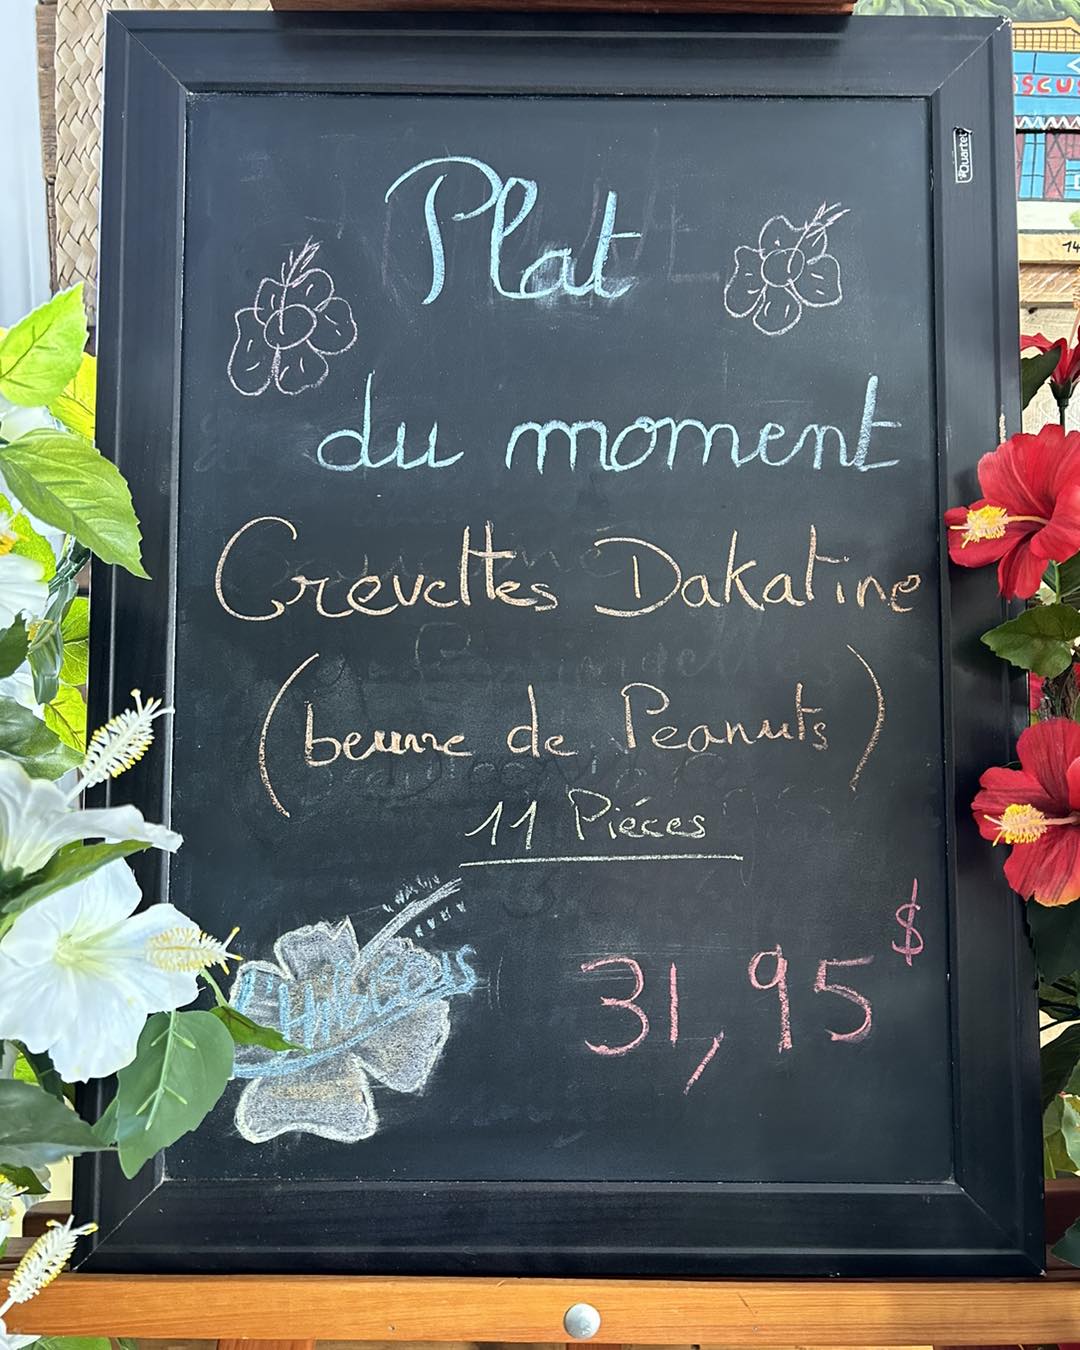 Plat
du moment
Crevettes Dakatine
(beurre de Peanuts)
11 Piéces
31,95$
L'HiBiscus
Quartet
ISCUS
14